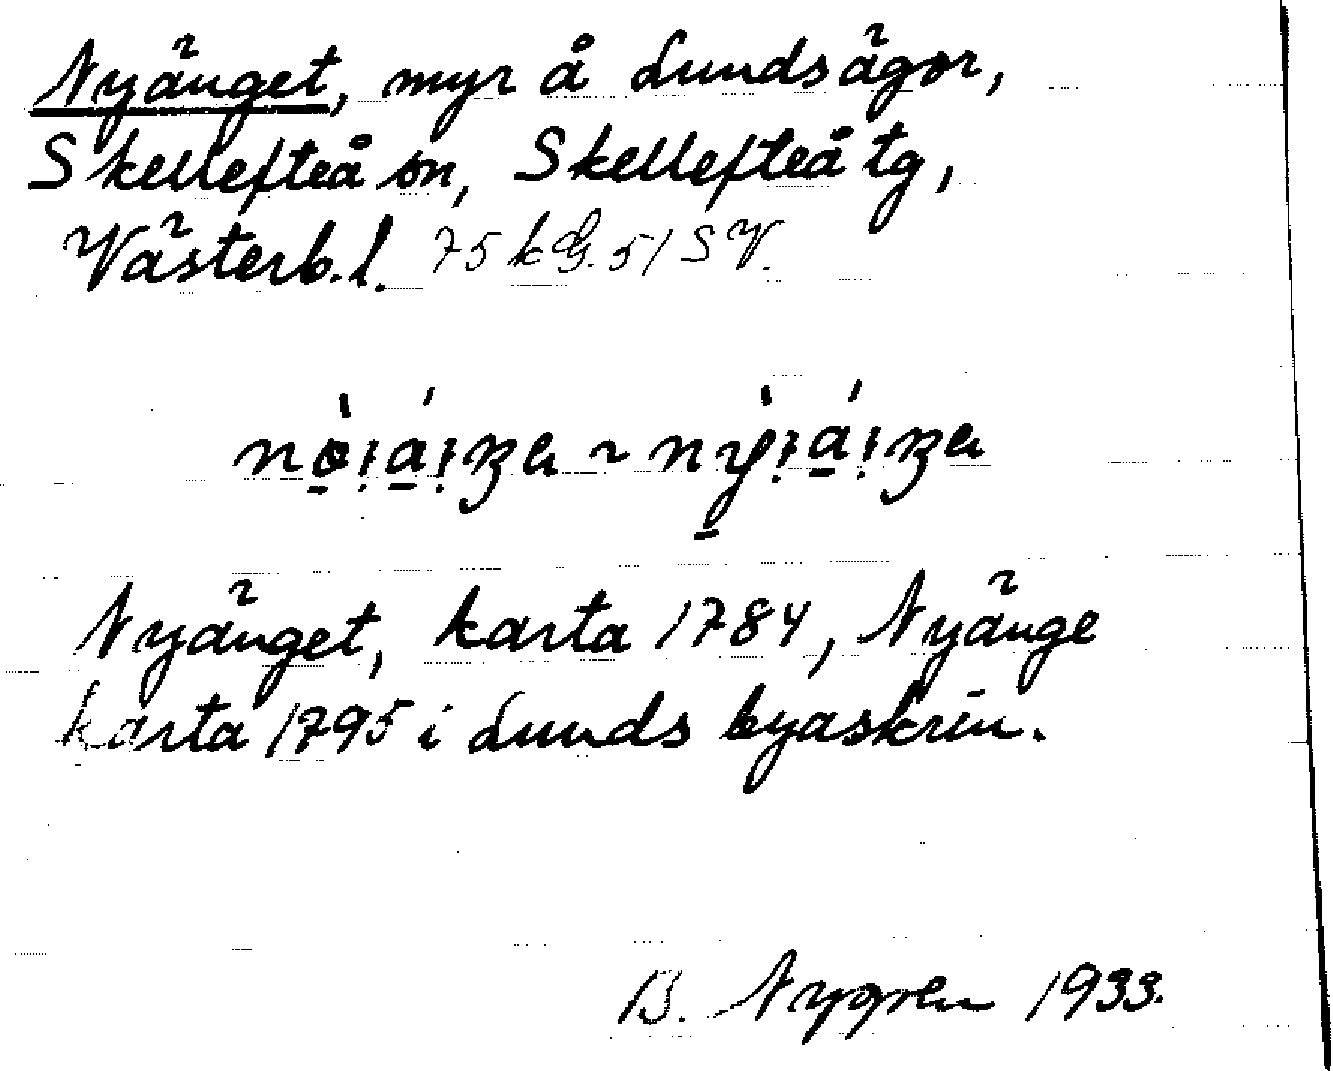 Nyänget, myr å Lunds ägor,
Skellefteå sn, Skellefteå tg,
Västerb. l. 75 k G. 51 SV.
Nyänget, karta 1784, Nyänge
karta 1795 i Lunds byaskrin.
B. Nygren 1933.